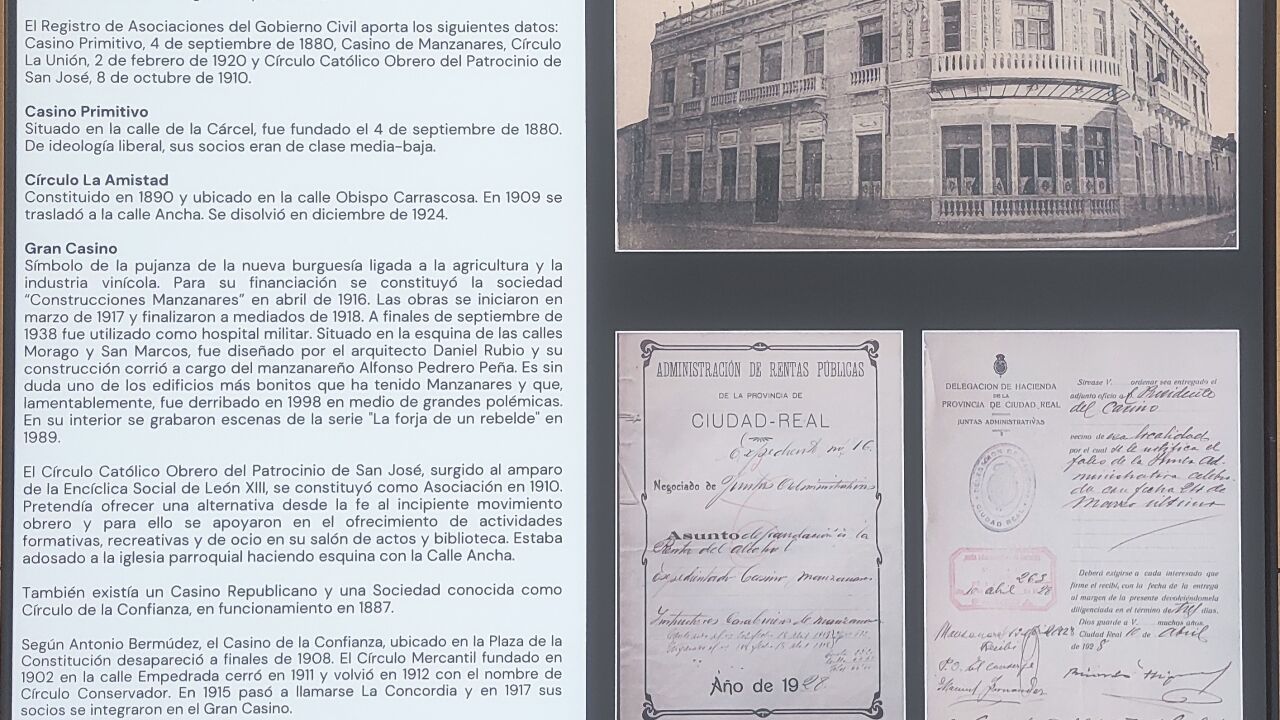 El Registro de Asociaciones del Gobierno Civil aporta los siguientes datos:
Casino Primitivo, 4 de septiembre de 1880, Casino de Manzanares, Círculo
La Unión, 2 de febrero de 1920 y Círculo Católico Obrero del Patrocinio de
San José, 8 de octubre de 1910.
Casino Primitivo
Situado en la calle de la Cárcel, fue fundado el 4 de septiembre de 1880.
De ideología liberal, sus socios eran de clase media-baja.
Círculo La Amistad
Constituido en 1890 y ubicado en la calle Obispo Carrascosa. En 1909 se
trasladó a la calle Ancha. Se disolvió en diciembre de 1924.
Gran Casino
Símbolo de la pujanza de la nueva burguesía ligada a la agricultura y la
industria vinícola. Para su financiación se constituyó la sociedad
“Construcciones Manzanares” en abril de 1916. Las obras se iniciaron en
marzo de 1917 y finalizaron a mediados de 1918. A finales de septiembre de
1938 fue utilizado como hospital militar. Situado en la esquina de las calles
Morago y San Marcos, fue diseñado por el arquitecto Daniel Rubio y su
construcción corrió a cargo del manzanareño Alfonso Pedrero Peña. Es sin
duda uno de los edificios más bonitos que ha tenido Manzanares y que,
lamentablemente, fue derribado en 1998 en medio de grandes polémicas.
En su interior se grabaron escenas de la serie "La forja de un rebelde" en
1989.
El Círculo Católico Obrero del Patrocinio de San José, surgido al amparo
de la Encíclica Social de León XIII, se constituyó como Asociación en 1910.
Pretendía ofrecer una alternativa desde la fe al incipiente movimiento
obrero y para ello se apoyaron en el ofrecimiento de actividades
formativas, recreativas y de ocio en su salón de actos y biblioteca. Estaba
adosado a la iglesia parroquial haciendo esquina con la Calle Ancha.
También existía un Casino Republicano y una Sociedad conocida como
Círculo de la Confianza, en funcionamiento en 1887.
Según Antonio Bermúdez, el Casino de la Confianza, ubicado en la Plaza de la
Constitución desapareció a finales de 1908. El Círculo Mercantil fundado en
1902 en la calle Empedrada cerró en 1911 y volvió en 1912 con el nombre de
Círculo Conservador. En 1915 pasó a llamarse La Concordia y en 1917 sus
socios se integraron en el Gran Casino.
ADMINISTRACIÓN DE RENTAS PÚBLICAS
DE LA PROVINCIA DE
CIUDAD-REAL
Expediente nº 16.
Negociado de Junta Administrativa
Asunto defraudación a la
Renta del alcohol
Expedientado Casino Manzanares
Año de 1928
DELEGACION DE HACIENDA
DE LA
PROVINCIA DE CIUDAD REAL
JUNTAS ADMINISTRATIVAS
CIUDAD REAL
263
10 abril 28
Sírvase V. ordenar sea entregado el
adjunto oficio a Presidente
del Casino
vecino de esa localidad
por el cual se notifica el
fallo de la Junta Ad-
ministrativa celebra-
da con fecha 24 de
Marzo último
Deberá exigirse a cada interesado que
firme el recibí, con la fecha de la entrega
al margen de la presente devolviéndomela
diligenciada en el término de tres días.
Dios guarde a V. muchos años.
Ciudad Real 10 de Abril
de 1928
Recibí
P.O. del Conserje
Manuel Fernandez